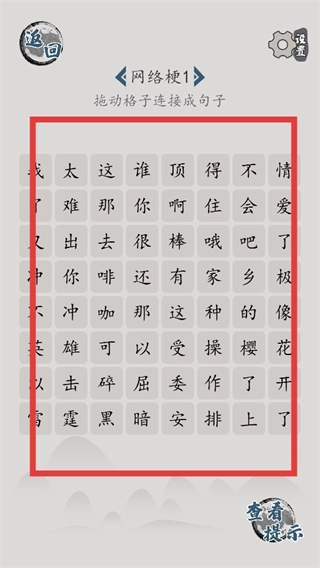 返回
设置
网络梗1
拖动格子连接成句子
我太这谁顶得不情
了难那你啊住会爱
又出去很棒哦吧了
冲你啡还有家乡极
不冲咖那这种的像
英雄可以受操樱花
以击碎屈委作了开
雷霆黑暗安排上了
查看
提示